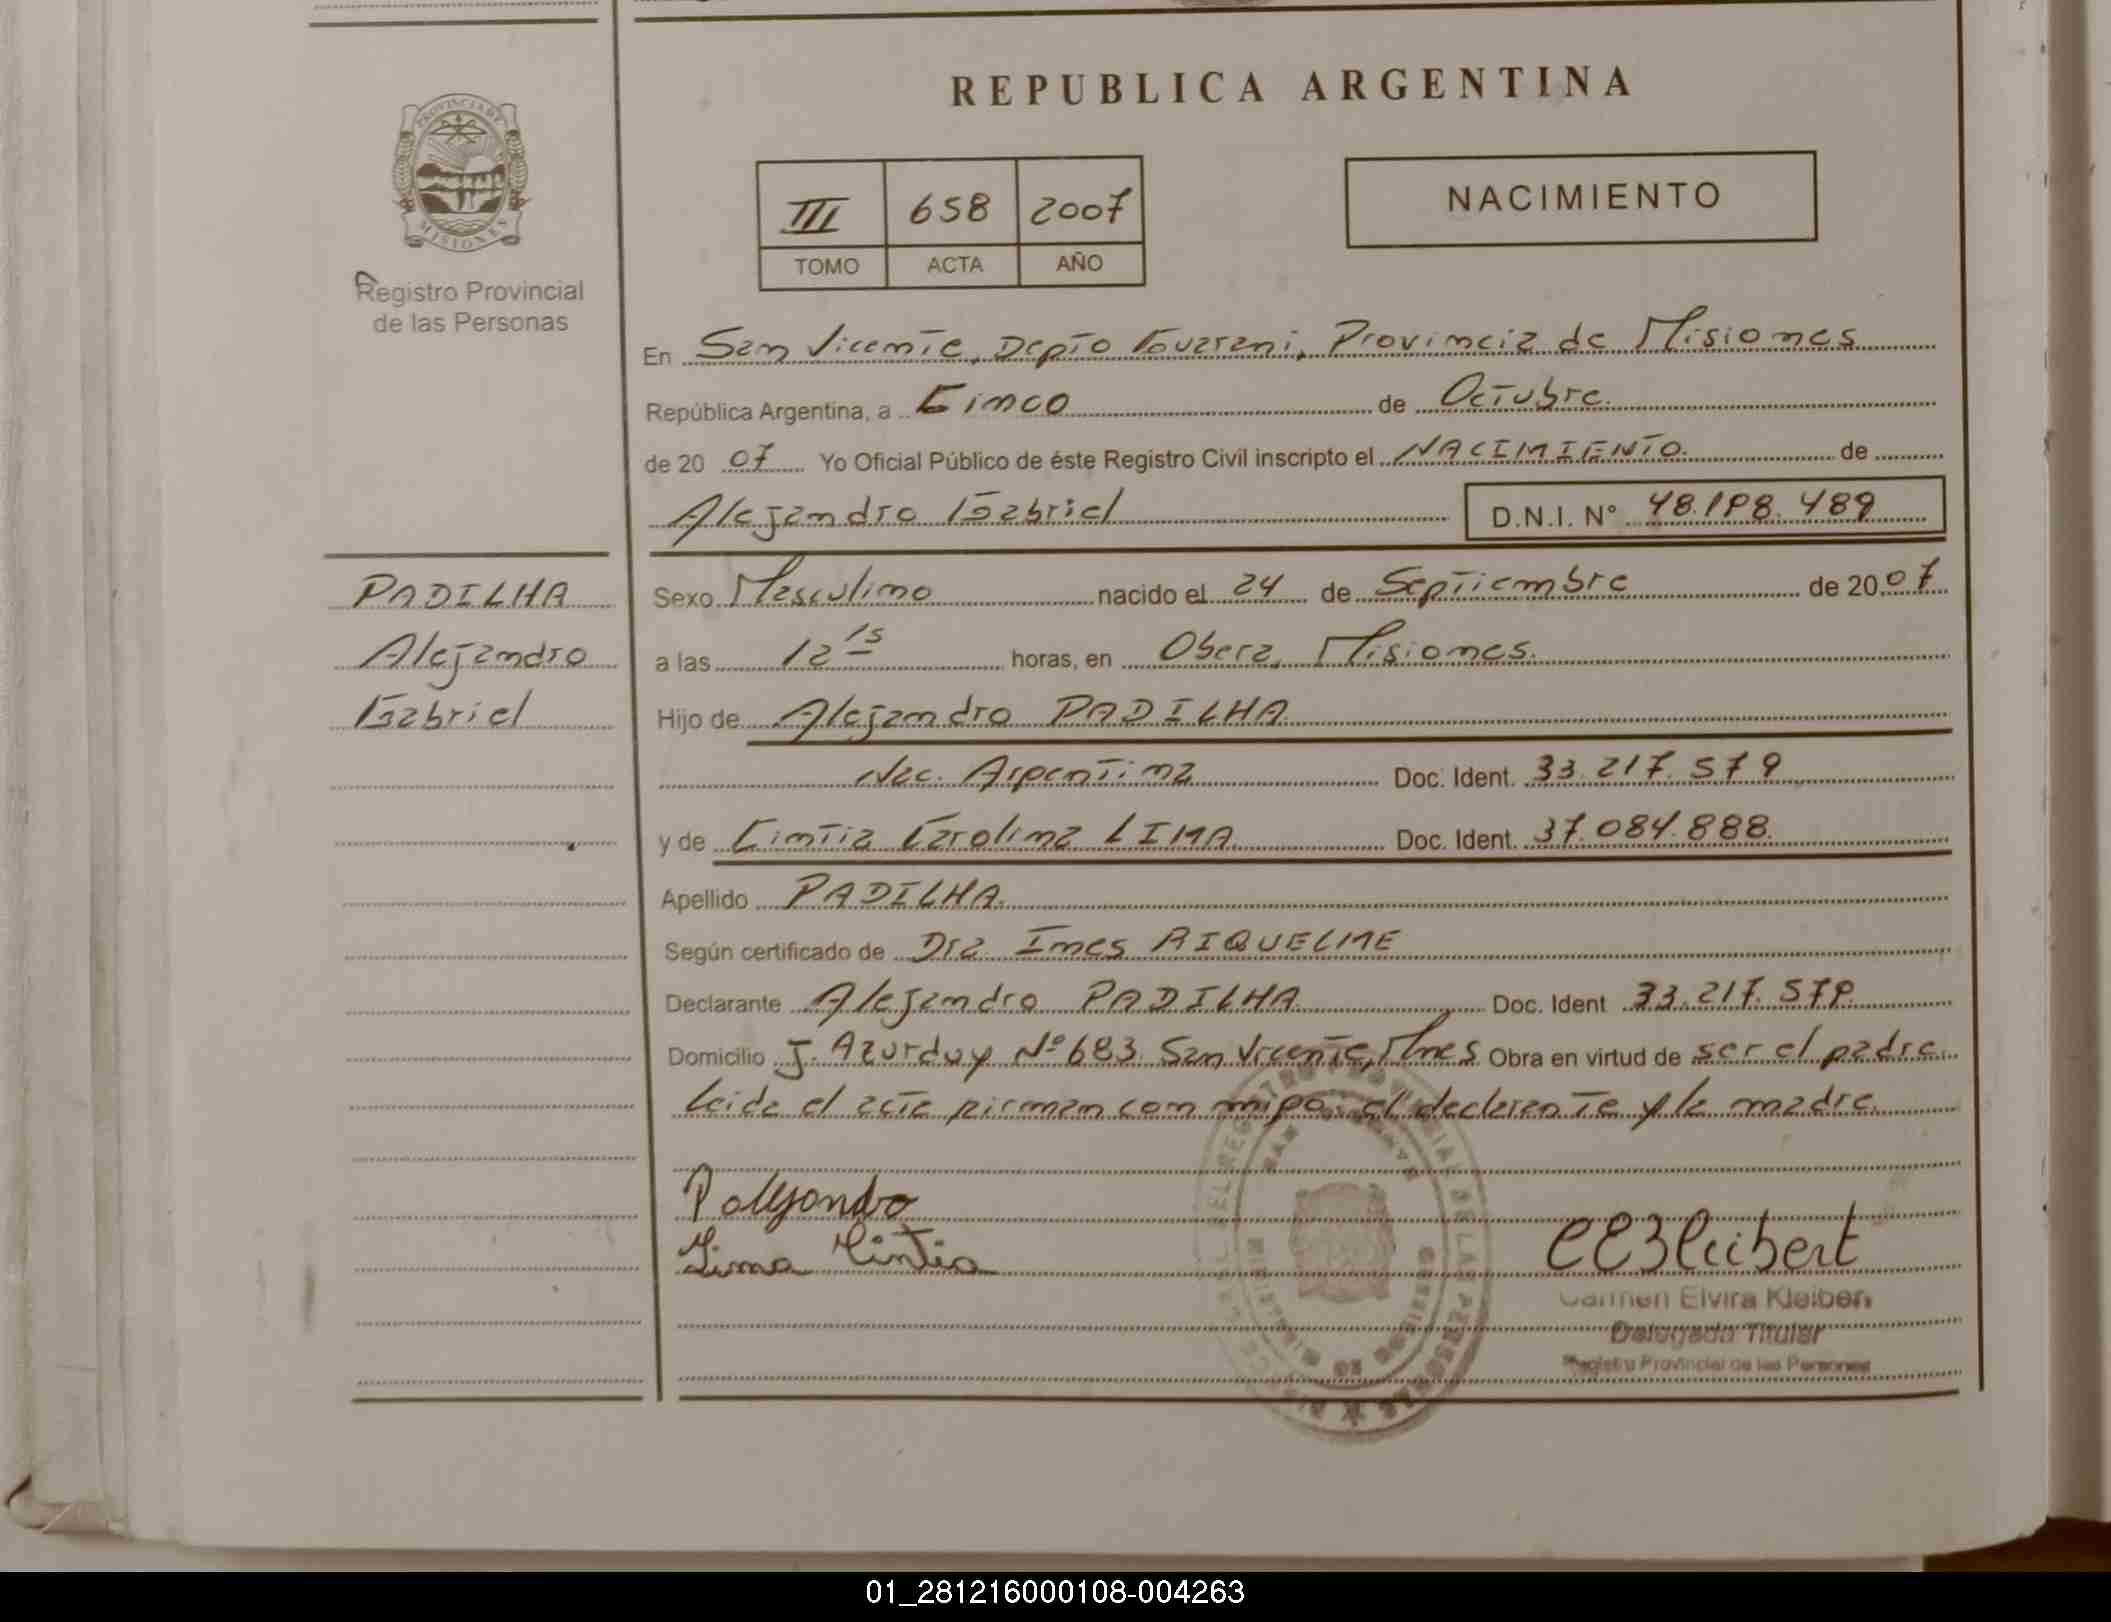 REPUBLICA ARGENTINA
PROVINCIA DE
MISIONES
Registro Provincial
de las Personas
III 658 2007
TOMO ACTA AÑO
NACIMIENTO
En San Vicente, Depto Guarani, Provincia de Misiones
República Argentina, a Cinco de Octubre.
de 20 07 Yo Oficial Público de éste Registro Civil inscripto el NACIMIENTO. de
Alejandro Gabriel D.N.I. N° 48.198.489
PADILHA
Alejandro
Gabriel
Sexo Masculino nacido el 24 de Septiembre de 20 07
a las 12 15 horas, en Obera, Misiones.
Hijo de Alejandro PADILHA
Nac. Argentina Doc. Ident. 33.217.579
y de Cintia Carolina LIMA Doc. Ident. 37.084.888.
Apellido PADILHA.
Según certificado de Dra. Ines RIQUELME
Declarante Alejandro PADILHA Doc. Ident 33.217.579.
Domicilio J. Azurduy Nº 683. San Vicente, Mnes Obra en virtud de ser el padre.
Leida el acta firman conmigo el declarante y la madre
P alejandro
Lima Cintia
CEKleibert
Carmen Elvira Kleibert
Delegada Titular
Registro Provincial de las Personas
01_281216000108-004263